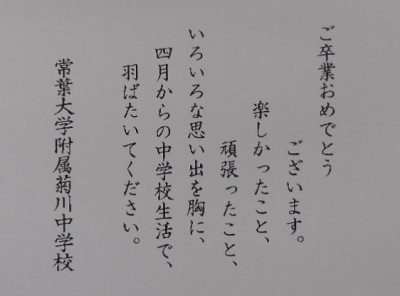 ご卒業おめでとう
ございます。
楽しかったこと、
頑張ったこと、
いろいろな思い出を胸に、
四月からの中学校生活で、
羽ばたいてください。
常葉大学附属菊川中学校